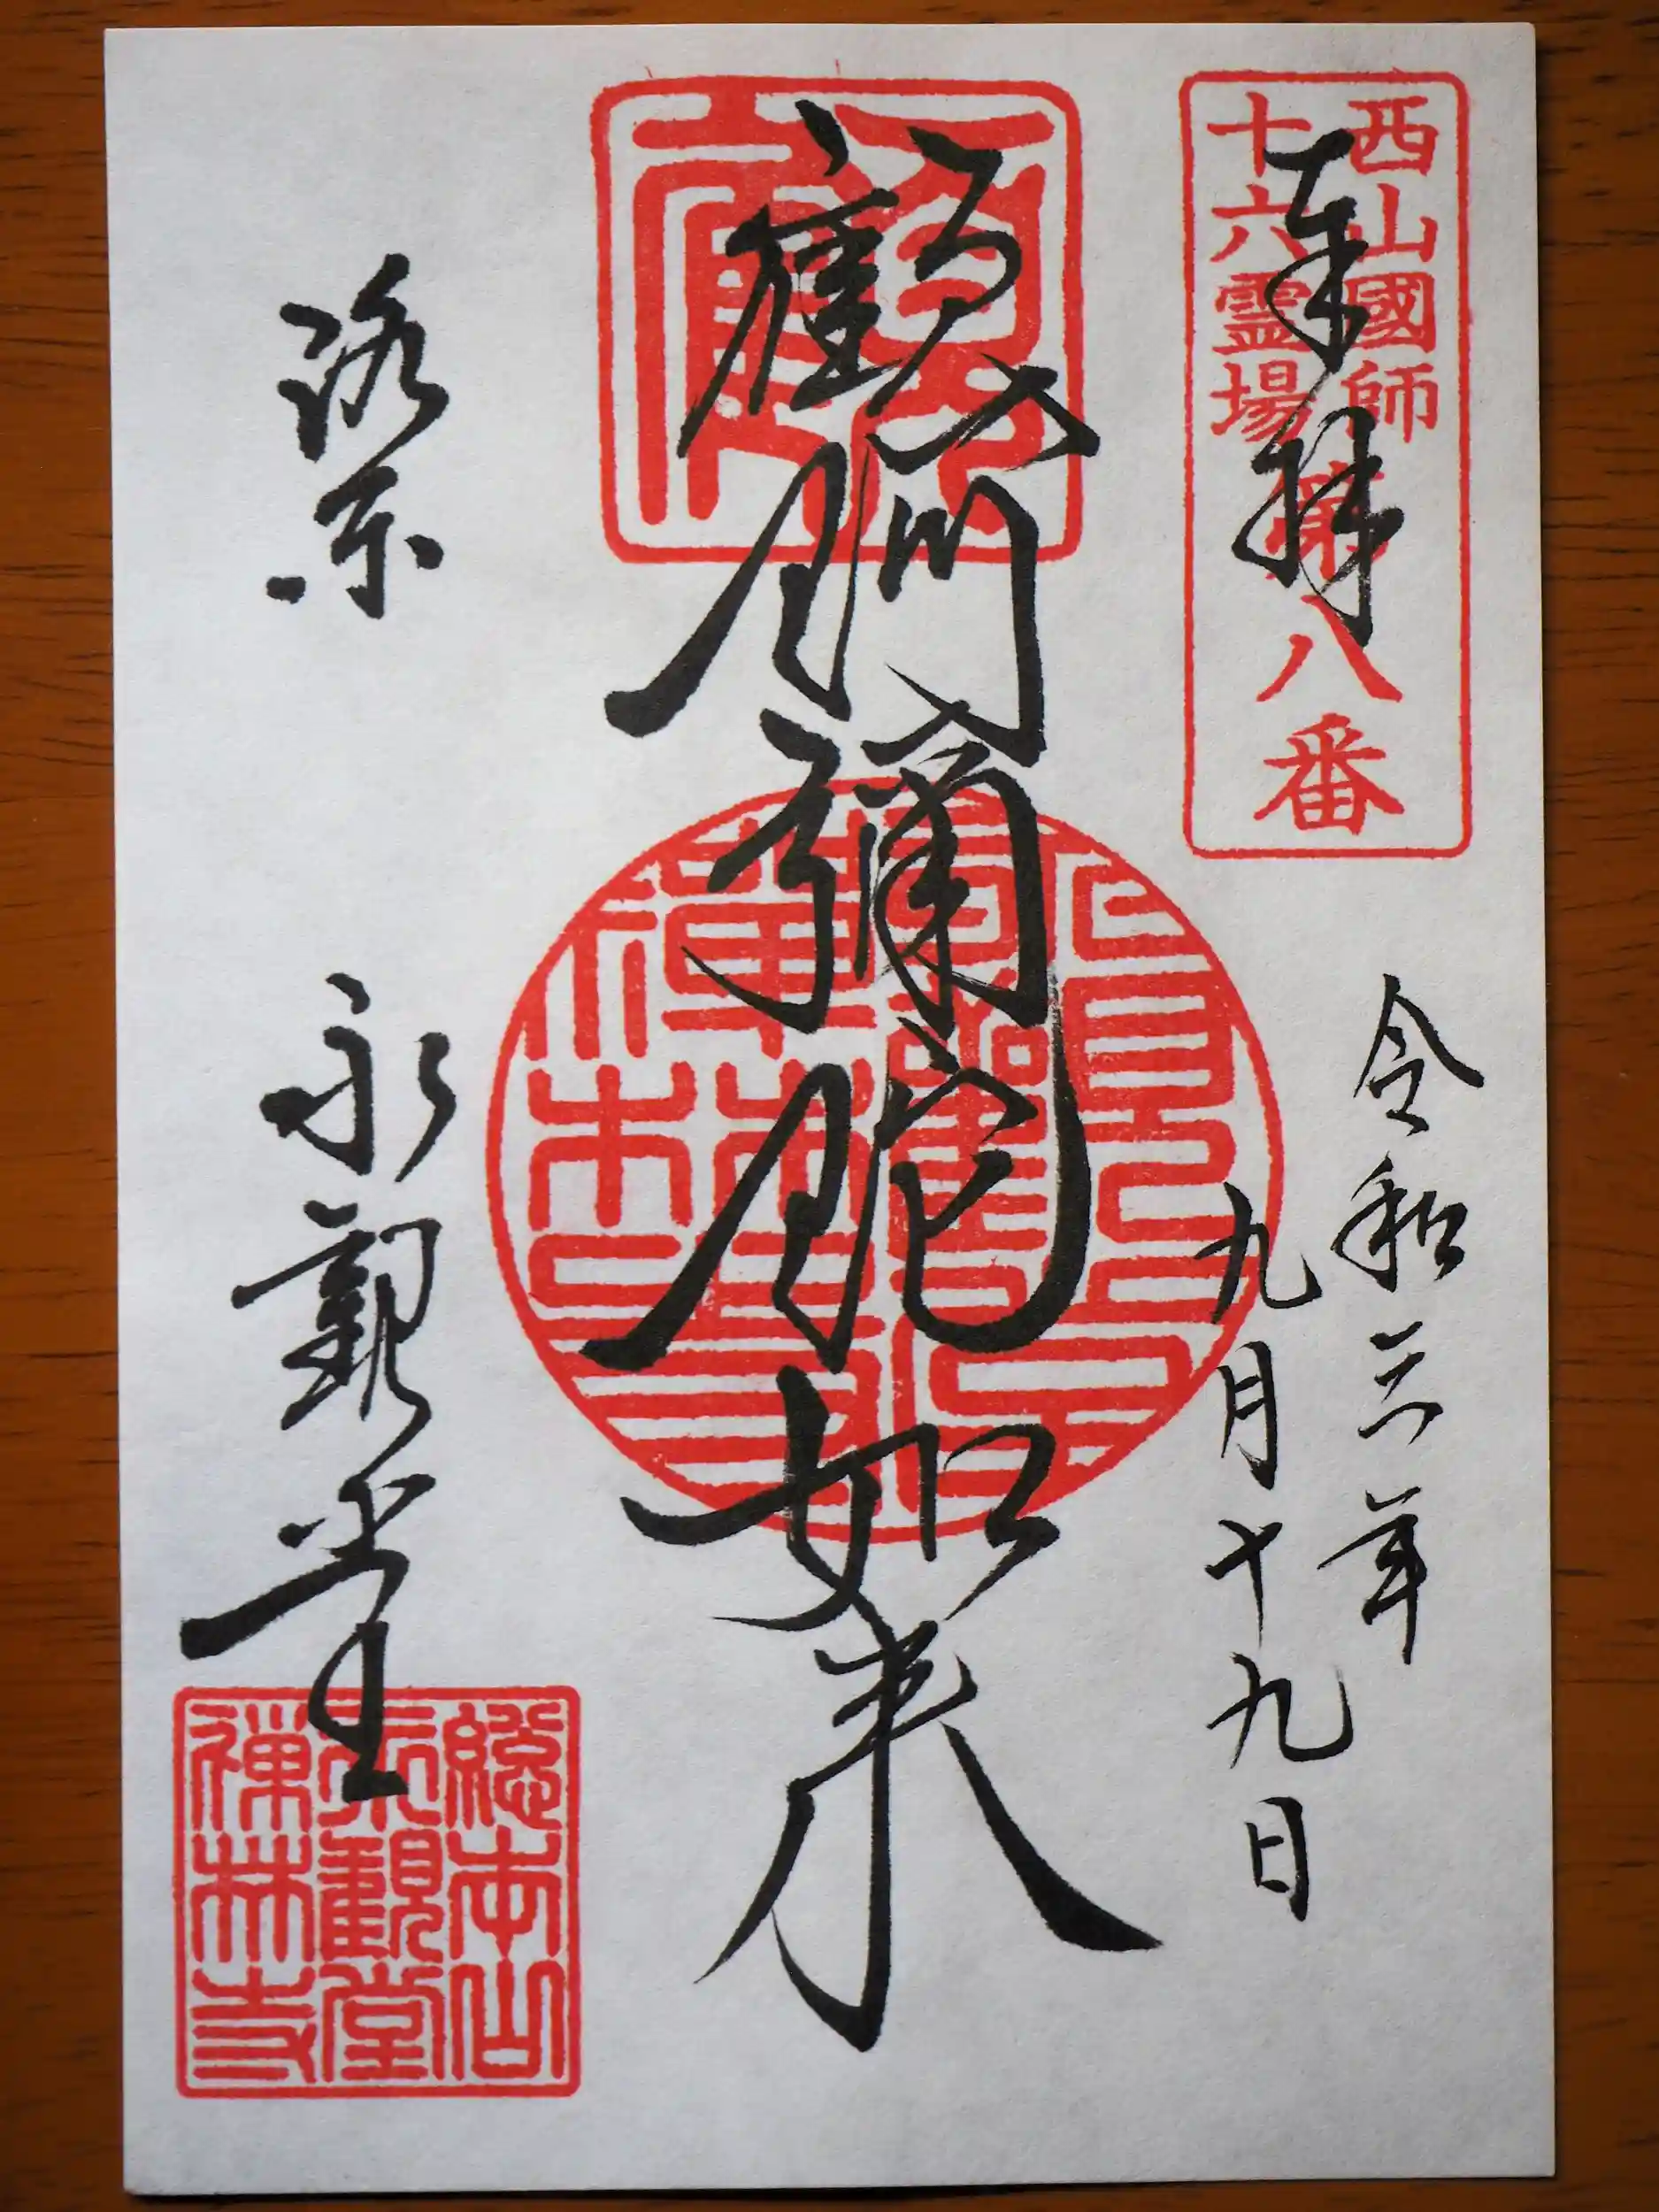 西山國師
十六霊場
第八番
奉拝
令和三年
九月十九日
顧佛彌陀如来
洛東 永觀堂
総本山
永觀堂
禅林寺